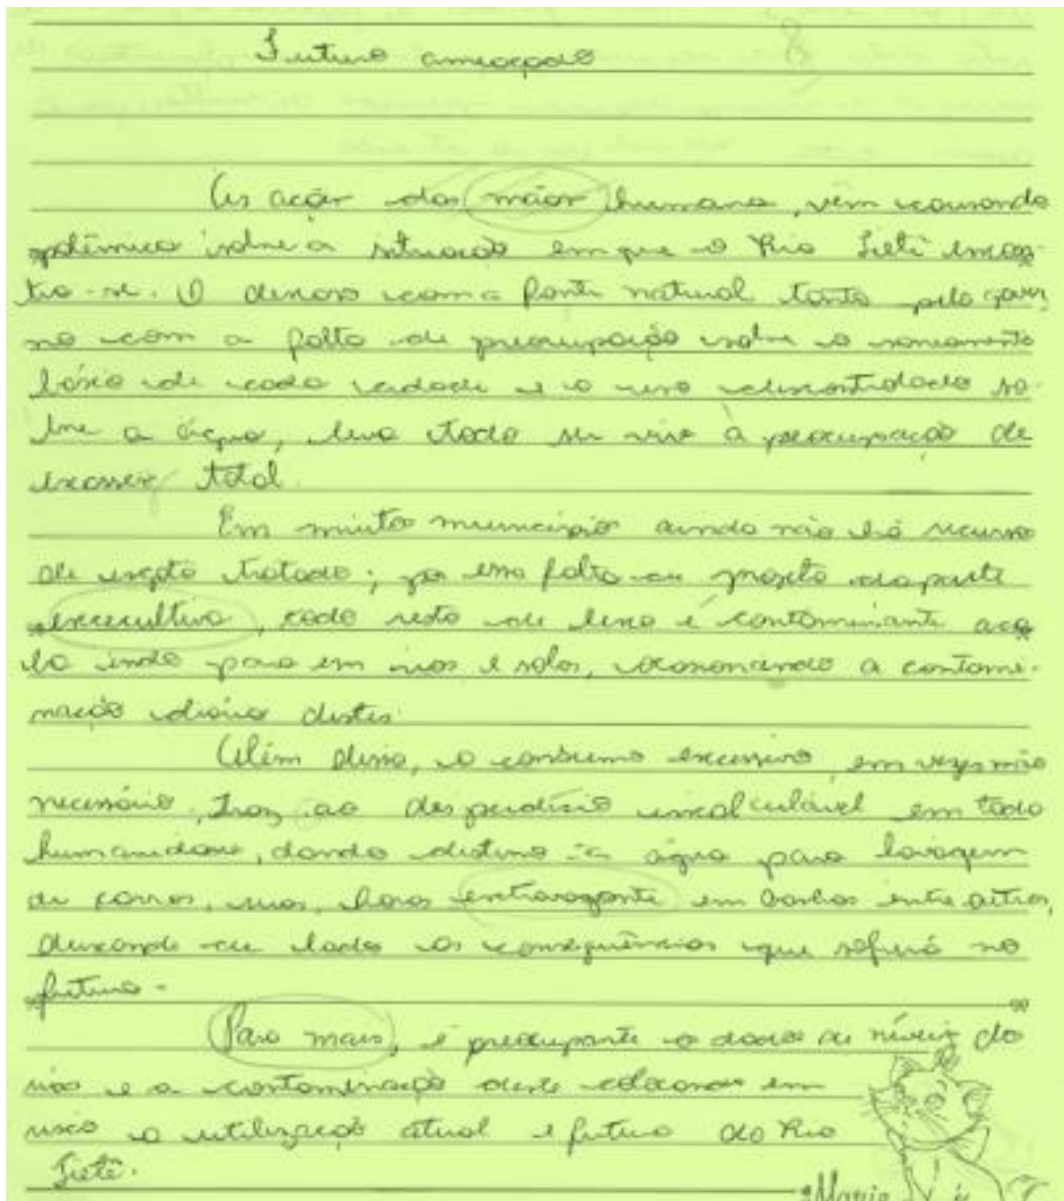 Futuro ameaçado
As ações das mãos humana, vêm causando
polêmica sobre a situação em que o Rio Tietê encon-
tra-se. O descaso com a fonte natural tanto pelo gover
no com a falta de preocupação sobre o saneamento
básico de cada cidade e o uso descontrolado so-
bre a água, leva todo ser vivo à preocupação de
escassez total.
Em muitos municípios ainda não há recurso
de esgoto tratado; por essa falta de projeto da parte
excecultiva, todo resto de lixo é contaminante aca
ba indo para em rios e solos, ocasionando a contami-
nação diária destes.
Além disso, o consumo excessivo, em vezes não
necessário, traz ao desperdício incalculável em toda
humanidade, dando destino à água para lavagem
de carros, ruas, horas extravagante em banhos entre outros,
deixando de lado as consequências que sofrerá no
futuro.
Para mais, é preocupante o dados de níveis do
rio e a contaminação deste colocando em
risco a utilização atual e futura do Rio
Tietê.